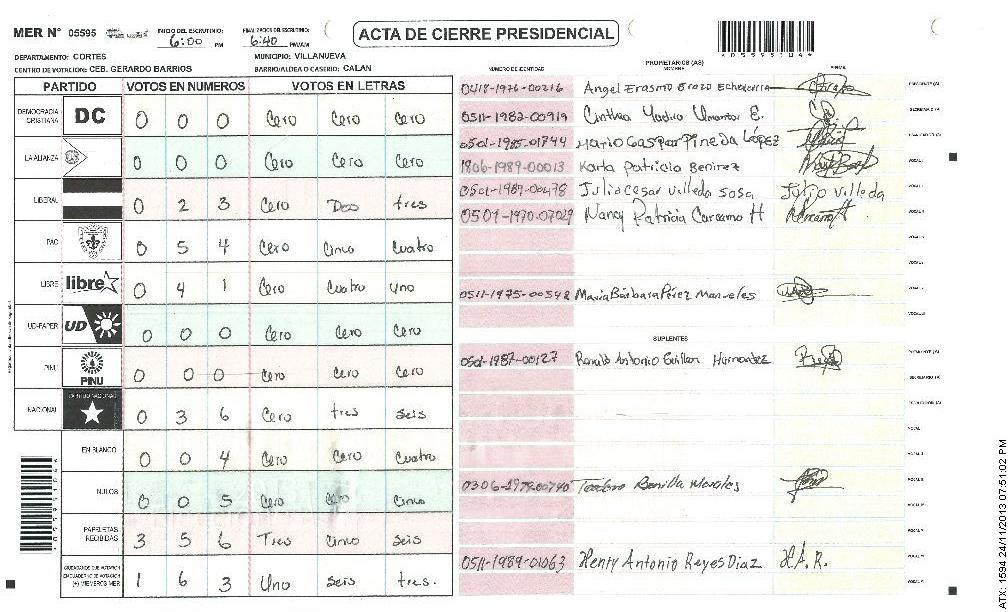 MER N° 05595
INICIO DEL ESCRUTINIO:
6:00 PM
FINALIZACION DEL ESCRUTINIO:
6:40 PM/AM
ACTA DE CIERRE PRESIDENCIAL
DEPARTAMENTO: CORTES
MUNICIPIO: VILLANUEVA
CENTRO DE VOTACIÓN: CEB. GERARDO BARRIOS
BARRIO/ALDEA O CASERIO: CALAN
PARTIDO VOTOS EN NUMEROS VOTOS EN LETRAS
DEMOCRACIA CRISTIANA DC 0 0 0 Cero Cero Cero
LA ALIANZA 0 0 0 Cero Cero Cero
LIBERAL 0 2 3 Cero Dos tres
PAC 0 5 4 Cero Cinco Cuatro
LIBRE libre 0 4 1 Cero Cuatro uno
UD-FAPER UD 0 0 0 Cero Cero Cero
PINU PINU 0 0 0 Cero Cero Cero
NACIONAL PARTIDO NACIONAL 0 3 6 Cero tres seis
EN BLANCO 0 0 4 Cero Cero Cuatro
NULOS 0 0 5 Cero Cero Cinco
PAPELETAS RECIBIDAS 3 5 6 Tres cinco seis
CIUDADANOS QUE VOTARON EN CUADERNO DE VOTACION (+) MIEMBROS MER 1 6 3 Uno seis tres.
PROPIETARIOS (AS)
NUMERO DE IDENTIDAD NOMBRE FIRMA
0418-1976-00216 Angel Erasmo Erazo Echeverria PRESIDENTE (A)
0511-1982-00919 Cinthia Yadira E. SECRETARIO (A)
0501-1985-01744 Mario Gaspar Pineda López ESCRUTADOR (A)
1806-1989-00013 Karla Patricia Benirez VOCAL I
0501-1987-00478 Julio Cesar Villeda Sosa Julio Villeda
0501-1970-07029 Nancy Patricia Carcamo H
0511-1975-00548 Maria Bárbara Pérez
SUPLENTES
0501-1987-00127 Antonio Hernandez
0306-1979-00740 Teodoro Bonilla Morales
0511-1989-01063 Henry Antonio Reyes Diaz H.A.R.
ATX: 1594 24/11/2013 07:51:02 PM